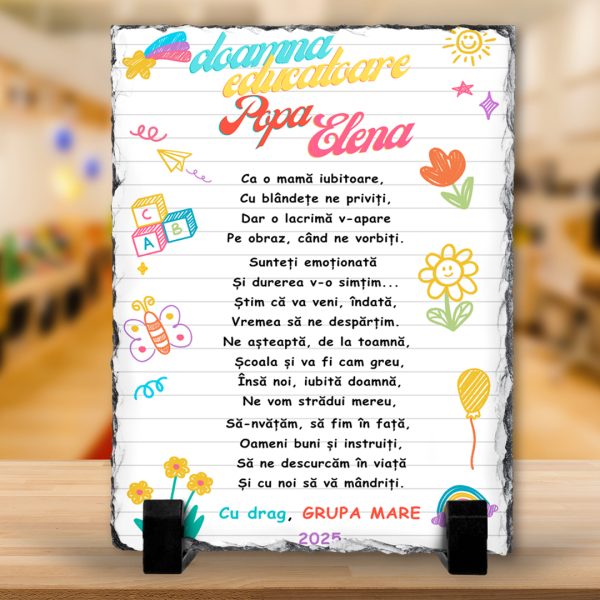 doamna
educatoare
Popa
Elena
Ca o mamă iubitoare,
Cu blândețe ne priviți,
Dar o lacrimă v-apare
Pe obraz, când ne vorbiți.
Sunteți emoționată
Și durerea v-o simțim...
Știm că va veni, îndată,
Vremea să ne despărțim.
Ne așteaptă, de la toamnă,
Școala și va fi cam greu,
Însă noi, iubită doamnă,
Ne vom strădui mereu,
Să-nvățăm, să fim în față,
Oameni buni și instruiți,
Să ne descurcăm în viață
Și cu noi să vă mândriți.
Cu drag, GRUPA MARE
2025
C
A B